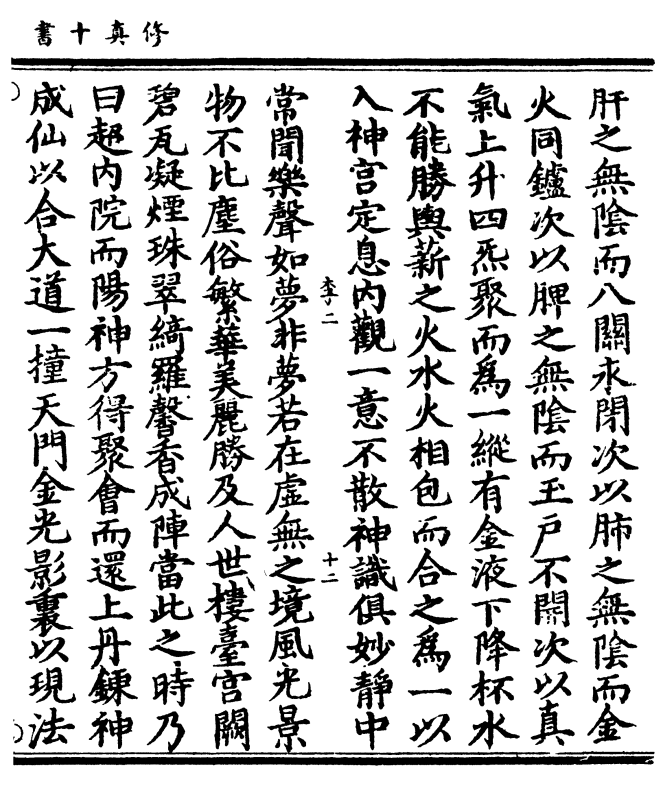 修真十書
肝之無陰而八關永閉次以肺之無陰而金
火同鑪次以脾之無陰而玉戶不開次以真
氣上升四炁聚而為一縱有金液下降杯水
不能勝輿薪之火水火相包而合之為一以
入神宮定息內觀一意不散神識俱妙靜中
李二
十二
常聞樂聲如夢非夢若在虛無之境風光景
物不比塵俗繁華美麗勝及人世樓臺宮闕
碧瓦凝煙珠翠綺羅馨香成陣當此之時乃
曰超內院而陽神方得聚會而還上丹鍊神
成仙以合大道一撞天門金光影裏以現法